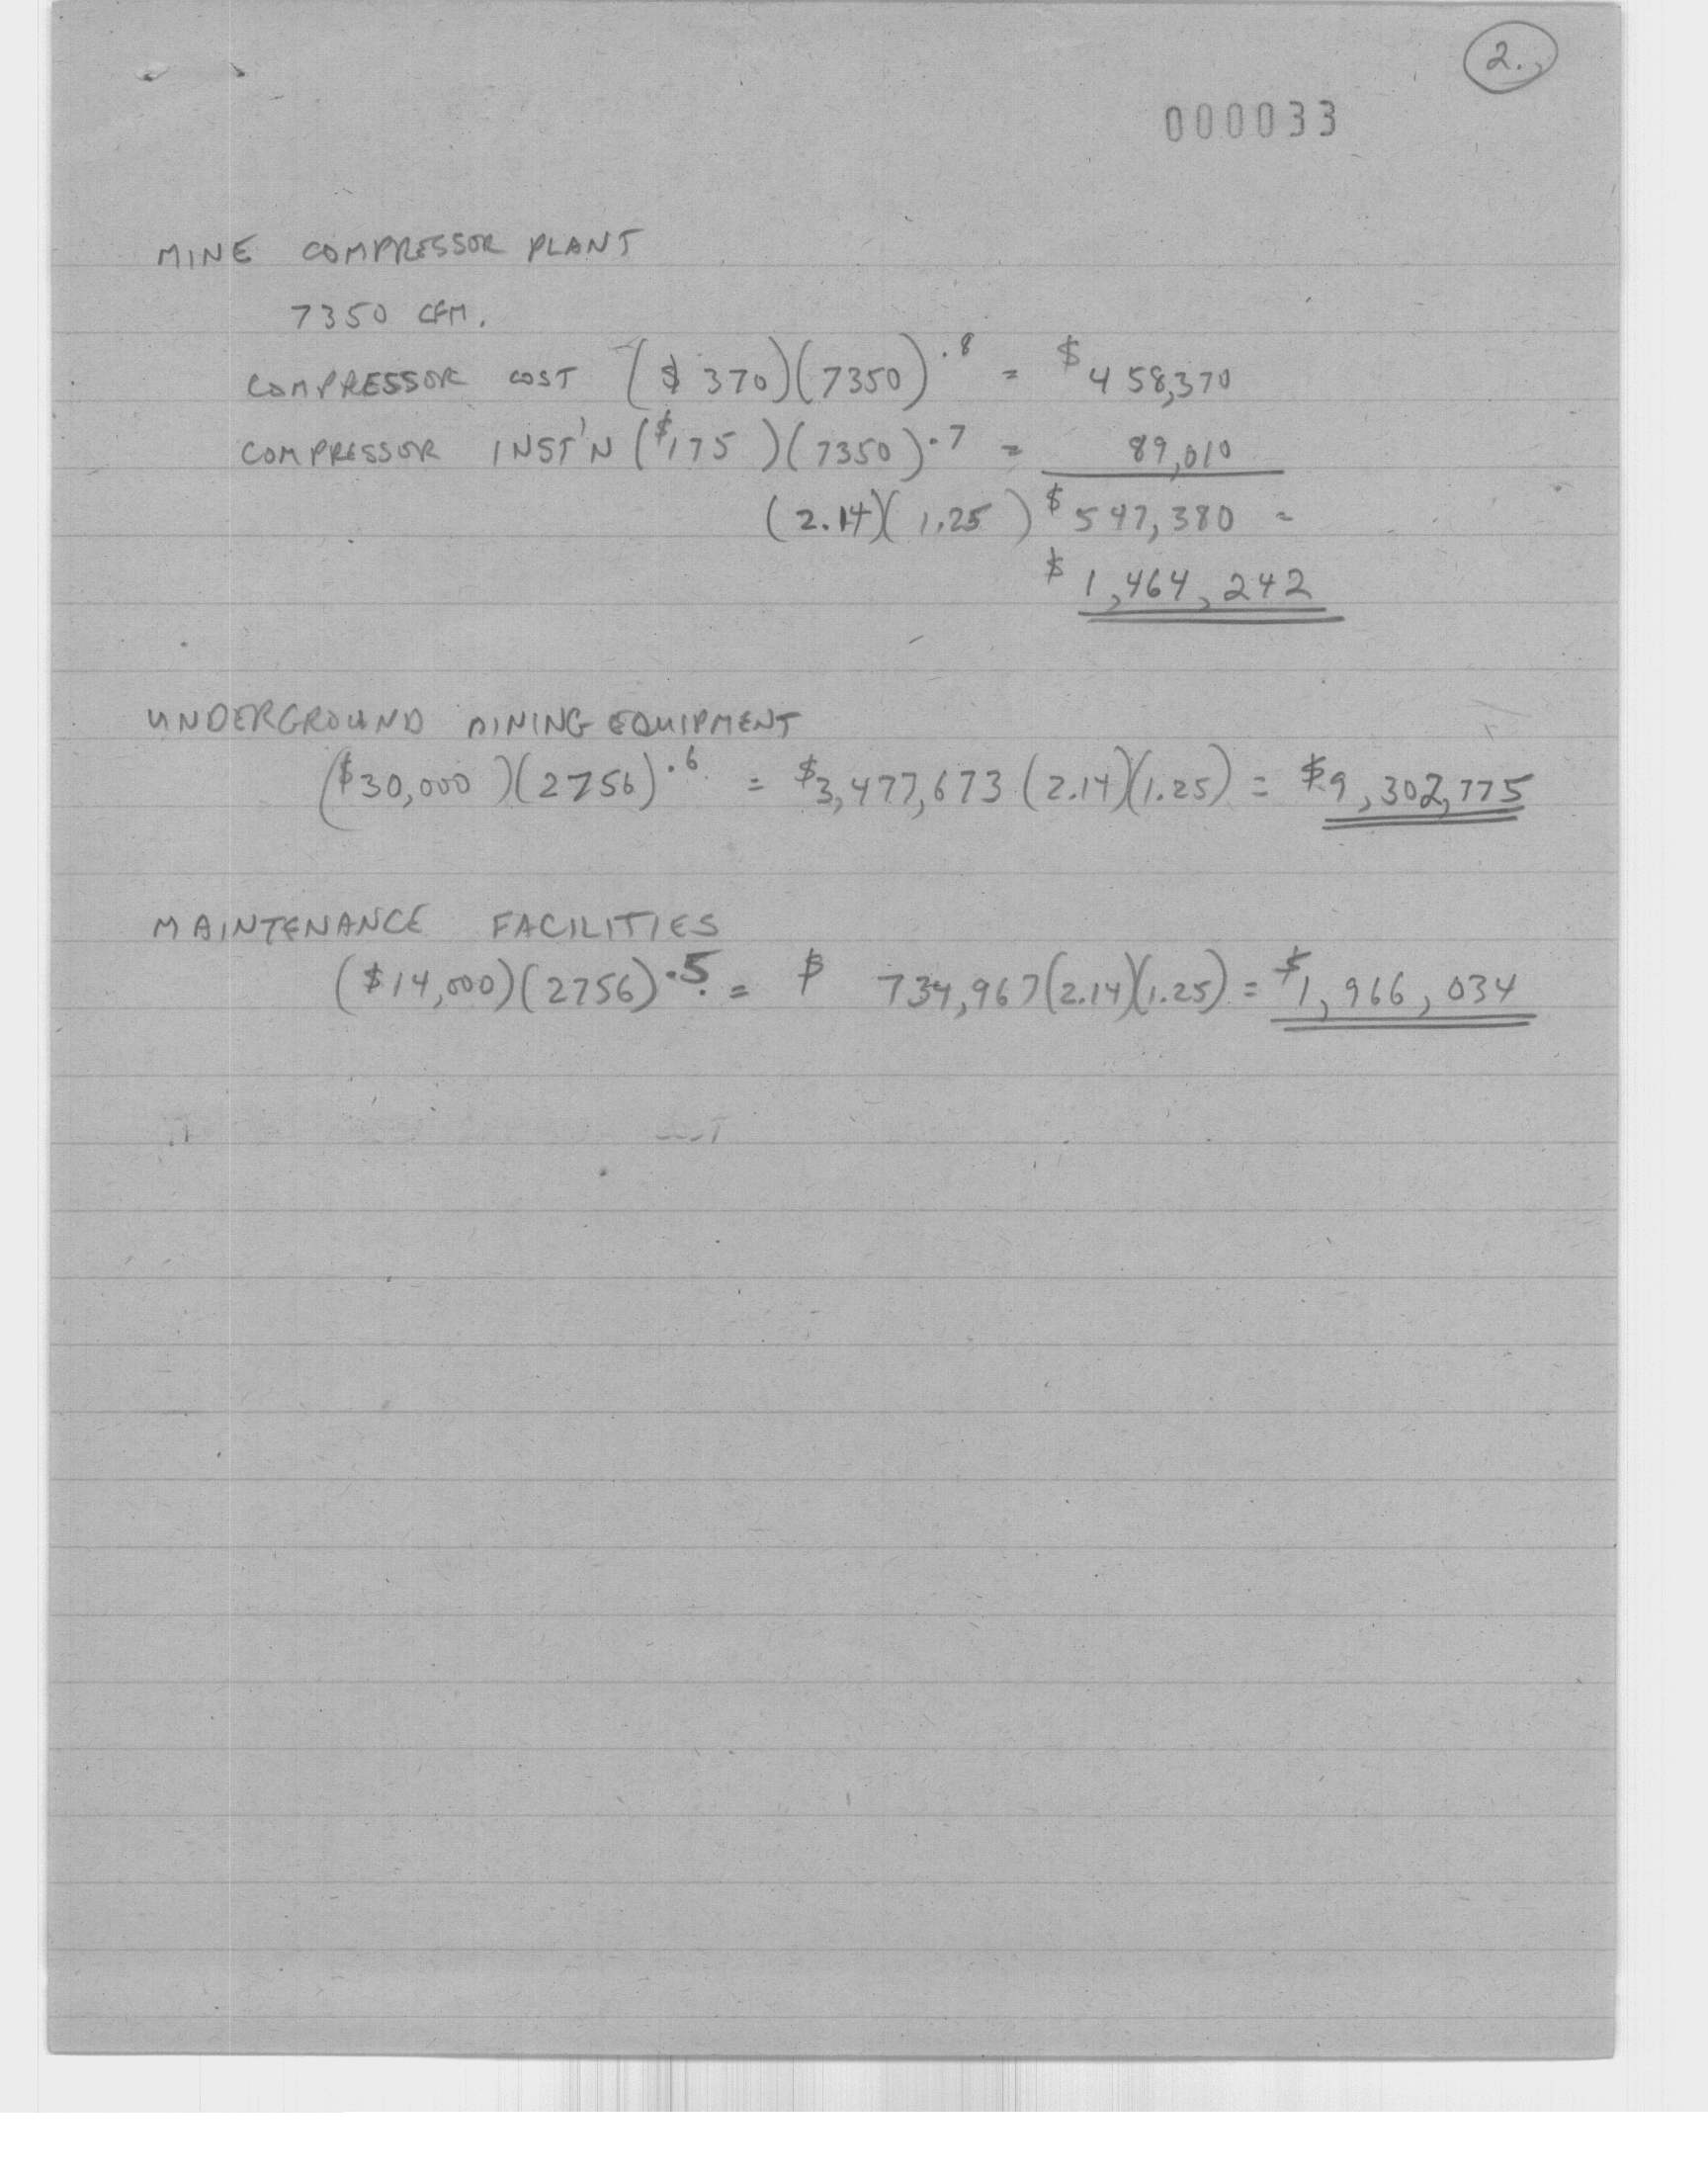 2.
000033
MINE COMPRESSOR PLANT
7350 CFM.
COMPRESSOR COST ($370)(7350)^.8 = $458,370
COMPRESSOR INST'N ($175)(7350)^.7 = 89,010
(2.14)(1.25) $547,380 =
$1,464,242
UNDERGROUND MINING EQUIPMENT
($30,000)(2756)^.6 = $3,477,673 (2.14)(1.25) = $9,302,775
MAINTENANCE FACILITIES
($14,000)(2756)^.5 = $734,967(2.14)(1.25) = $1,966,034